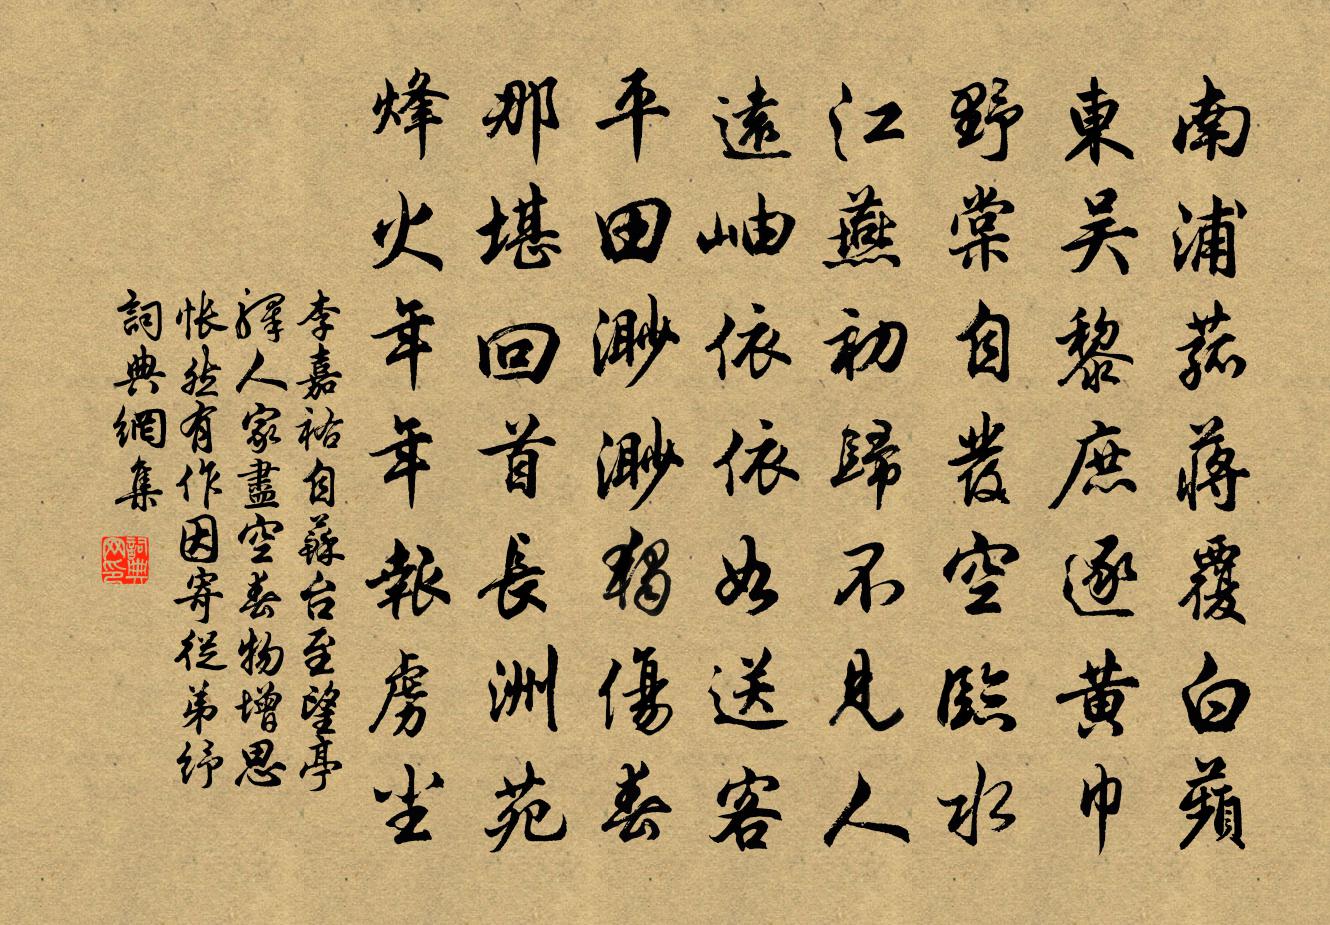 南浦菰蔣覆白蘋
東吳黎庶逐黃巾
野棠自發空臨水
江燕初歸不見人
遠岫依依如送客
平田渺渺獨傷春
那堪回首長洲苑
烽火年年報虜尘
李嘉祐自蘇台至望亭
驛人家盡空春物增思
悵然有作因寄從弟紓
詞典網集
詞典
网印